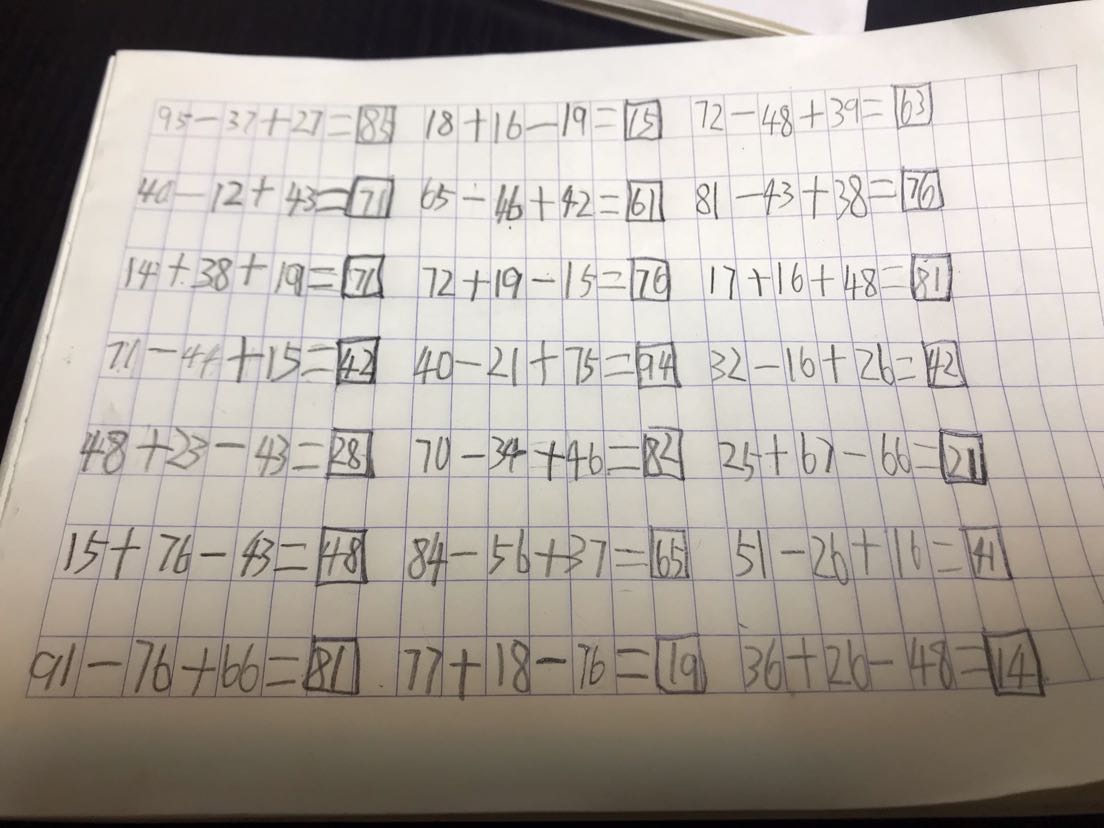 95-37+27=85 18+16-19=15 72-48+39=63
40-12+43=71 65-46+42=61 81-43+38=76
14+38+19=71 72+19-15=76 17+16+48=81
71-44+15=42 40-21+75=94 32-16+26=42
48+23-43=28 70-34+46=82 25+67-66=21
15+76-43=48 84-56+37=65 51-26+16=41
91-76+66=81 77+18-76=19 36+26-48=14